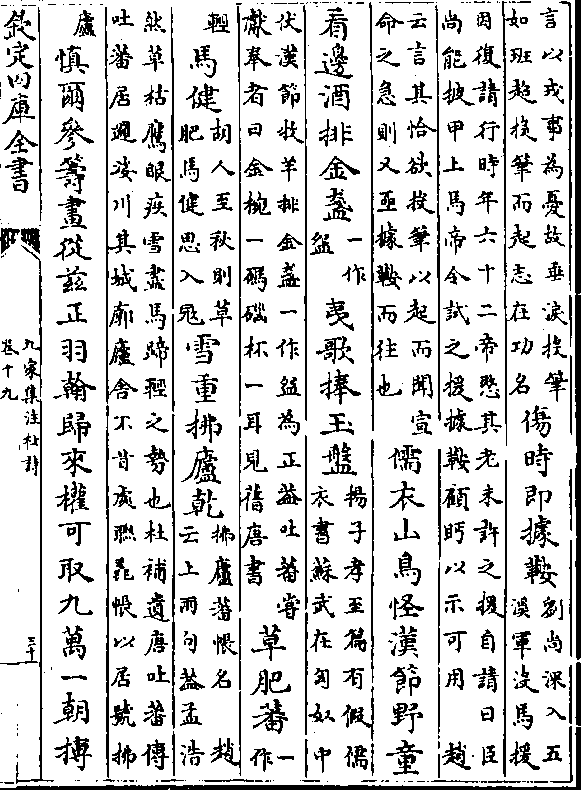 言以戎事為憂故垂淚投筆
如班超投筆而起志在功名
傷時即據鞍
劉尚深入五
溪軍沒馬援
因復請行時年六十二帝愍其老未許之援自請曰臣
尚能披甲上馬帝令試之援據鞍顧眄以示可用 趙
云言其恰欲投筆以起而聞宣
命之急則又亟據鞍而往也
儒衣山鳥怪漢節野童
看邊酒排金盞
一作
盌
夷歌捧玉盤
揚子孝至篇有假儒
衣書蘇武在匈奴中
伏漢節牧羊排金盞一作盌為正葢吐蕃嘗
獻奉者曰金椀一碼碯杯一耳見舊唐書
草肥蕃
一
作
輕
馬健
胡人至秋則草
肥馬健思入冦
雪重拂廬乾
拂廬蕃帳名 趙
云上兩句葢孟浩
然草枯鷹眼疾雪盡馬蹄輕之勢也杜補遺唐吐蕃傳
吐蕃居邏娑川其城廓廬舍不肯處聯毳帳以居號拂
廬
慎爾參籌畫從兹正羽翰歸來權可取九萬一朝摶
欽定四庫全書
九家集注杜詩
卷十九
三十